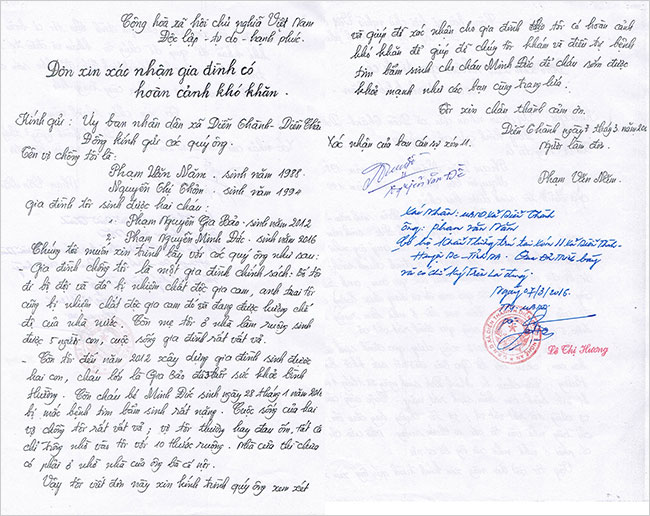 Cộng hòa xã hội chủ nghĩa Việt Nam
Độc lập - tự do - hạnh phúc.
Đơn xin xác nhận gia đình có
hoàn cảnh khó khăn.
Kính gửi: Ủy ban nhân dân xã Diễn Thành - Diễn Châu
Đồng kính gửi các quý ông.
Tên vợ chồng tôi là:
Phạm Văn Năm. sinh năm 1988
Nguyễn Thị Thân. sinh năm 1994
gia đình tôi sinh được hai cháu:
1. Phạm Nguyễn Gia Bảo - sinh năm 2012
2. Phạm Nguyễn Minh Đức. sinh năm 2016
Chúng tôi muốn xin trình bày với các quý ông như sau:
- Gia đình chồng tôi là một gia đình chính sách: bố tôi
đi bộ đội và đã bị nhiễm chất độc gia cam, anh trai tôi
cũng bị nhiễm chất độc gia cam đã và đang được hưởng chế
độ của nhà nước. Còn mẹ tôi ở nhà làm ruộng sinh
được 5 người con, cuộc sống gia đình rất vất vả.
- Còn tôi đến năm 2012 xây dựng gia đình sinh được
hai con, cháu lớn là Gia Bảo sức khỏe bình
thường. Còn cháu bé Minh Đức sinh ngày 28 tháng 1 năm
bị mắc bệnh tim bẩm sinh rất nặng. Cuộc sống của hai
vợ chồng tôi rất vất vả; vợ tôi thường hay đau ốm, tất cả
chỉ trông nhờ vào tôi với 10 thước ruộng. Nhà cửa thì chưa
có phải ở nhờ nhà của ông bà có nội.
Vậy tôi viết đơn này xin kính trình quý ông xem xét
và giúp đỡ xác nhận cho gia đình tôi có hoàn cảnh
khó khăn để giúp đỡ chúng tôi khám và điều trị bệnh
tim bẩm sinh cho cháu Minh Đức để cháu sớm được
khỏe mạnh như các bạn cùng trang lứa.
Tôi xin chân thành cảm ơn.
Diễn Thành ngày 7 tháng 3 năm
Xác nhận của ban cán sự xóm 11.
Người làm đơn.
Nguyễn Văn Đề
Phạm Văn Năm.
Xác Nhận: UBND Xã Diễn Thành
Ông: Phạm Văn Năm
Có hộ khẩu thường trú tại xóm 11 Xã Diễn Thành
Huyện DC - Tỉnh NA.
và có chữ ký trên là đúng.
Ngày 07/3/2016.
Lê Thị Hương